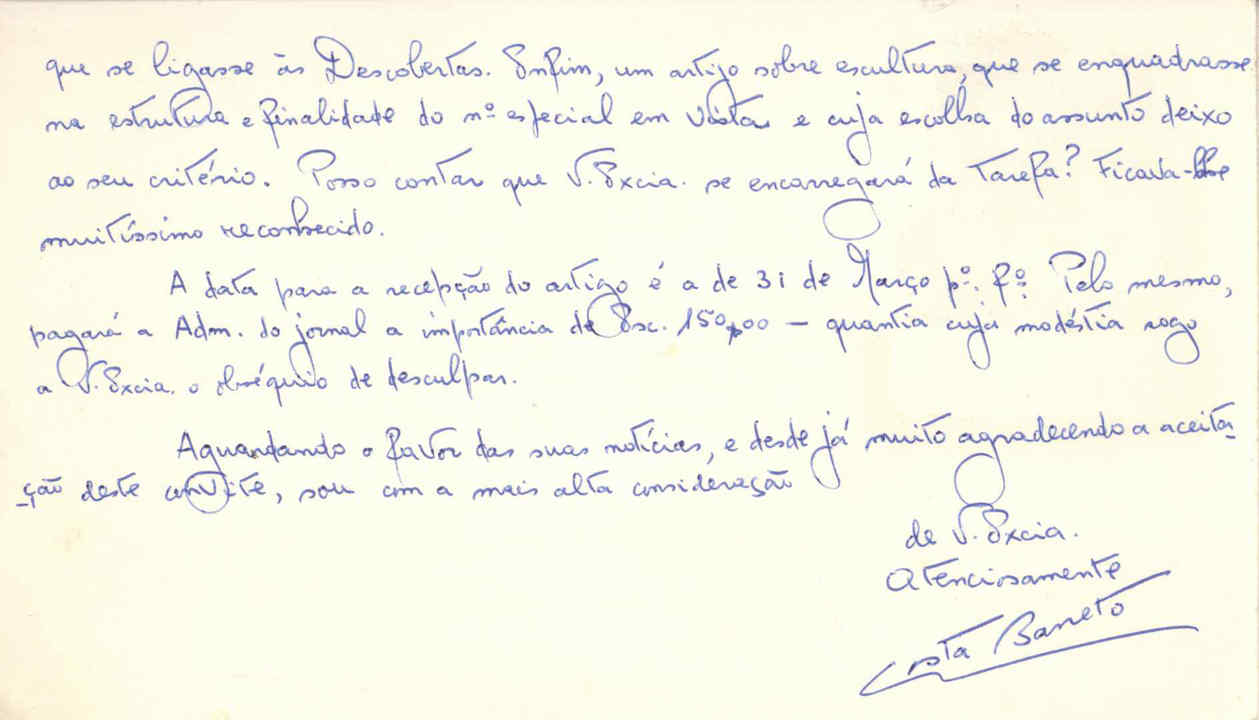 que se ligasse às Descobertas. Enfim, um artigo sobre escultura, que se enquadrasse
na estrutura e finalidade do nº especial em vista e cuja escolha do assunto deixo
ao seu critério. Posso contar que V. Excia. se encarregará da tarefa? Ficava-lhe
muitíssimo reconhecido.
A data para a recepção do artigo é a de 31 de Março pº. fº. Pelo mesmo,
pagará a Adm. do jornal a importância de Esc. 150$00 — quantia cuja modéstia rogo
a V. Excia. o obséquio de desculpar.
Aguardando o favor das suas notícias, e desde já muito agradecendo a aceita-
-ção deste convite, sou com a mais alta consideração
de V. Excia.
Atenciosamente
Costa Barreto